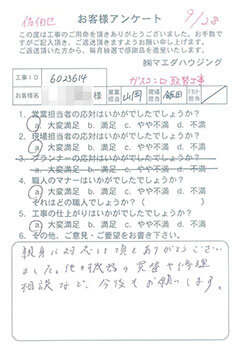 佐伯区
9/28
お客様アンケート
この度は工事のご用命を頂きありがとうございました。お手数で
すがご記入頂き、ご返送頂きますようお願い申し上げます。
ご返送頂いた方から、毎月抽選で感謝品を進呈いたします。
㈱マエダハウジング
ガスコンロ取替工事
工事ID 6023614
お客様名 様 営業担当 山岡 現場担当 飯田 プランナー担当
1. 営業担当者の応対はいかがでしたでしょうか?
a. 大変満足 b. 満足 c. やや不満 d. 不満
2. 現場担当者の応対はいかがでしたでしょうか?
a. 大変満足 b. 満足 c. やや不満 d. 不満
3. プランナーの応対はいかがでしたでしょうか?
a. 大変満足 b. 満足 c. やや不満 d. 不満
4. 職人のマナーはいかがでしたでしょうか?
a. 大変満足 b. 満足 c. やや不満 d. 不満
それはどの職人でしょうか?( )
5. 工事の仕上がりはいかがでしたでしょうか?
a. 大変満足 b. 満足 c. やや不満 d. 不満
6. その他、ご意見・ご要望をお書き下さい。
親身に対応して頂きありがとうござい
ました。他の機器の買替や修理
相談など、今後もお願いします。